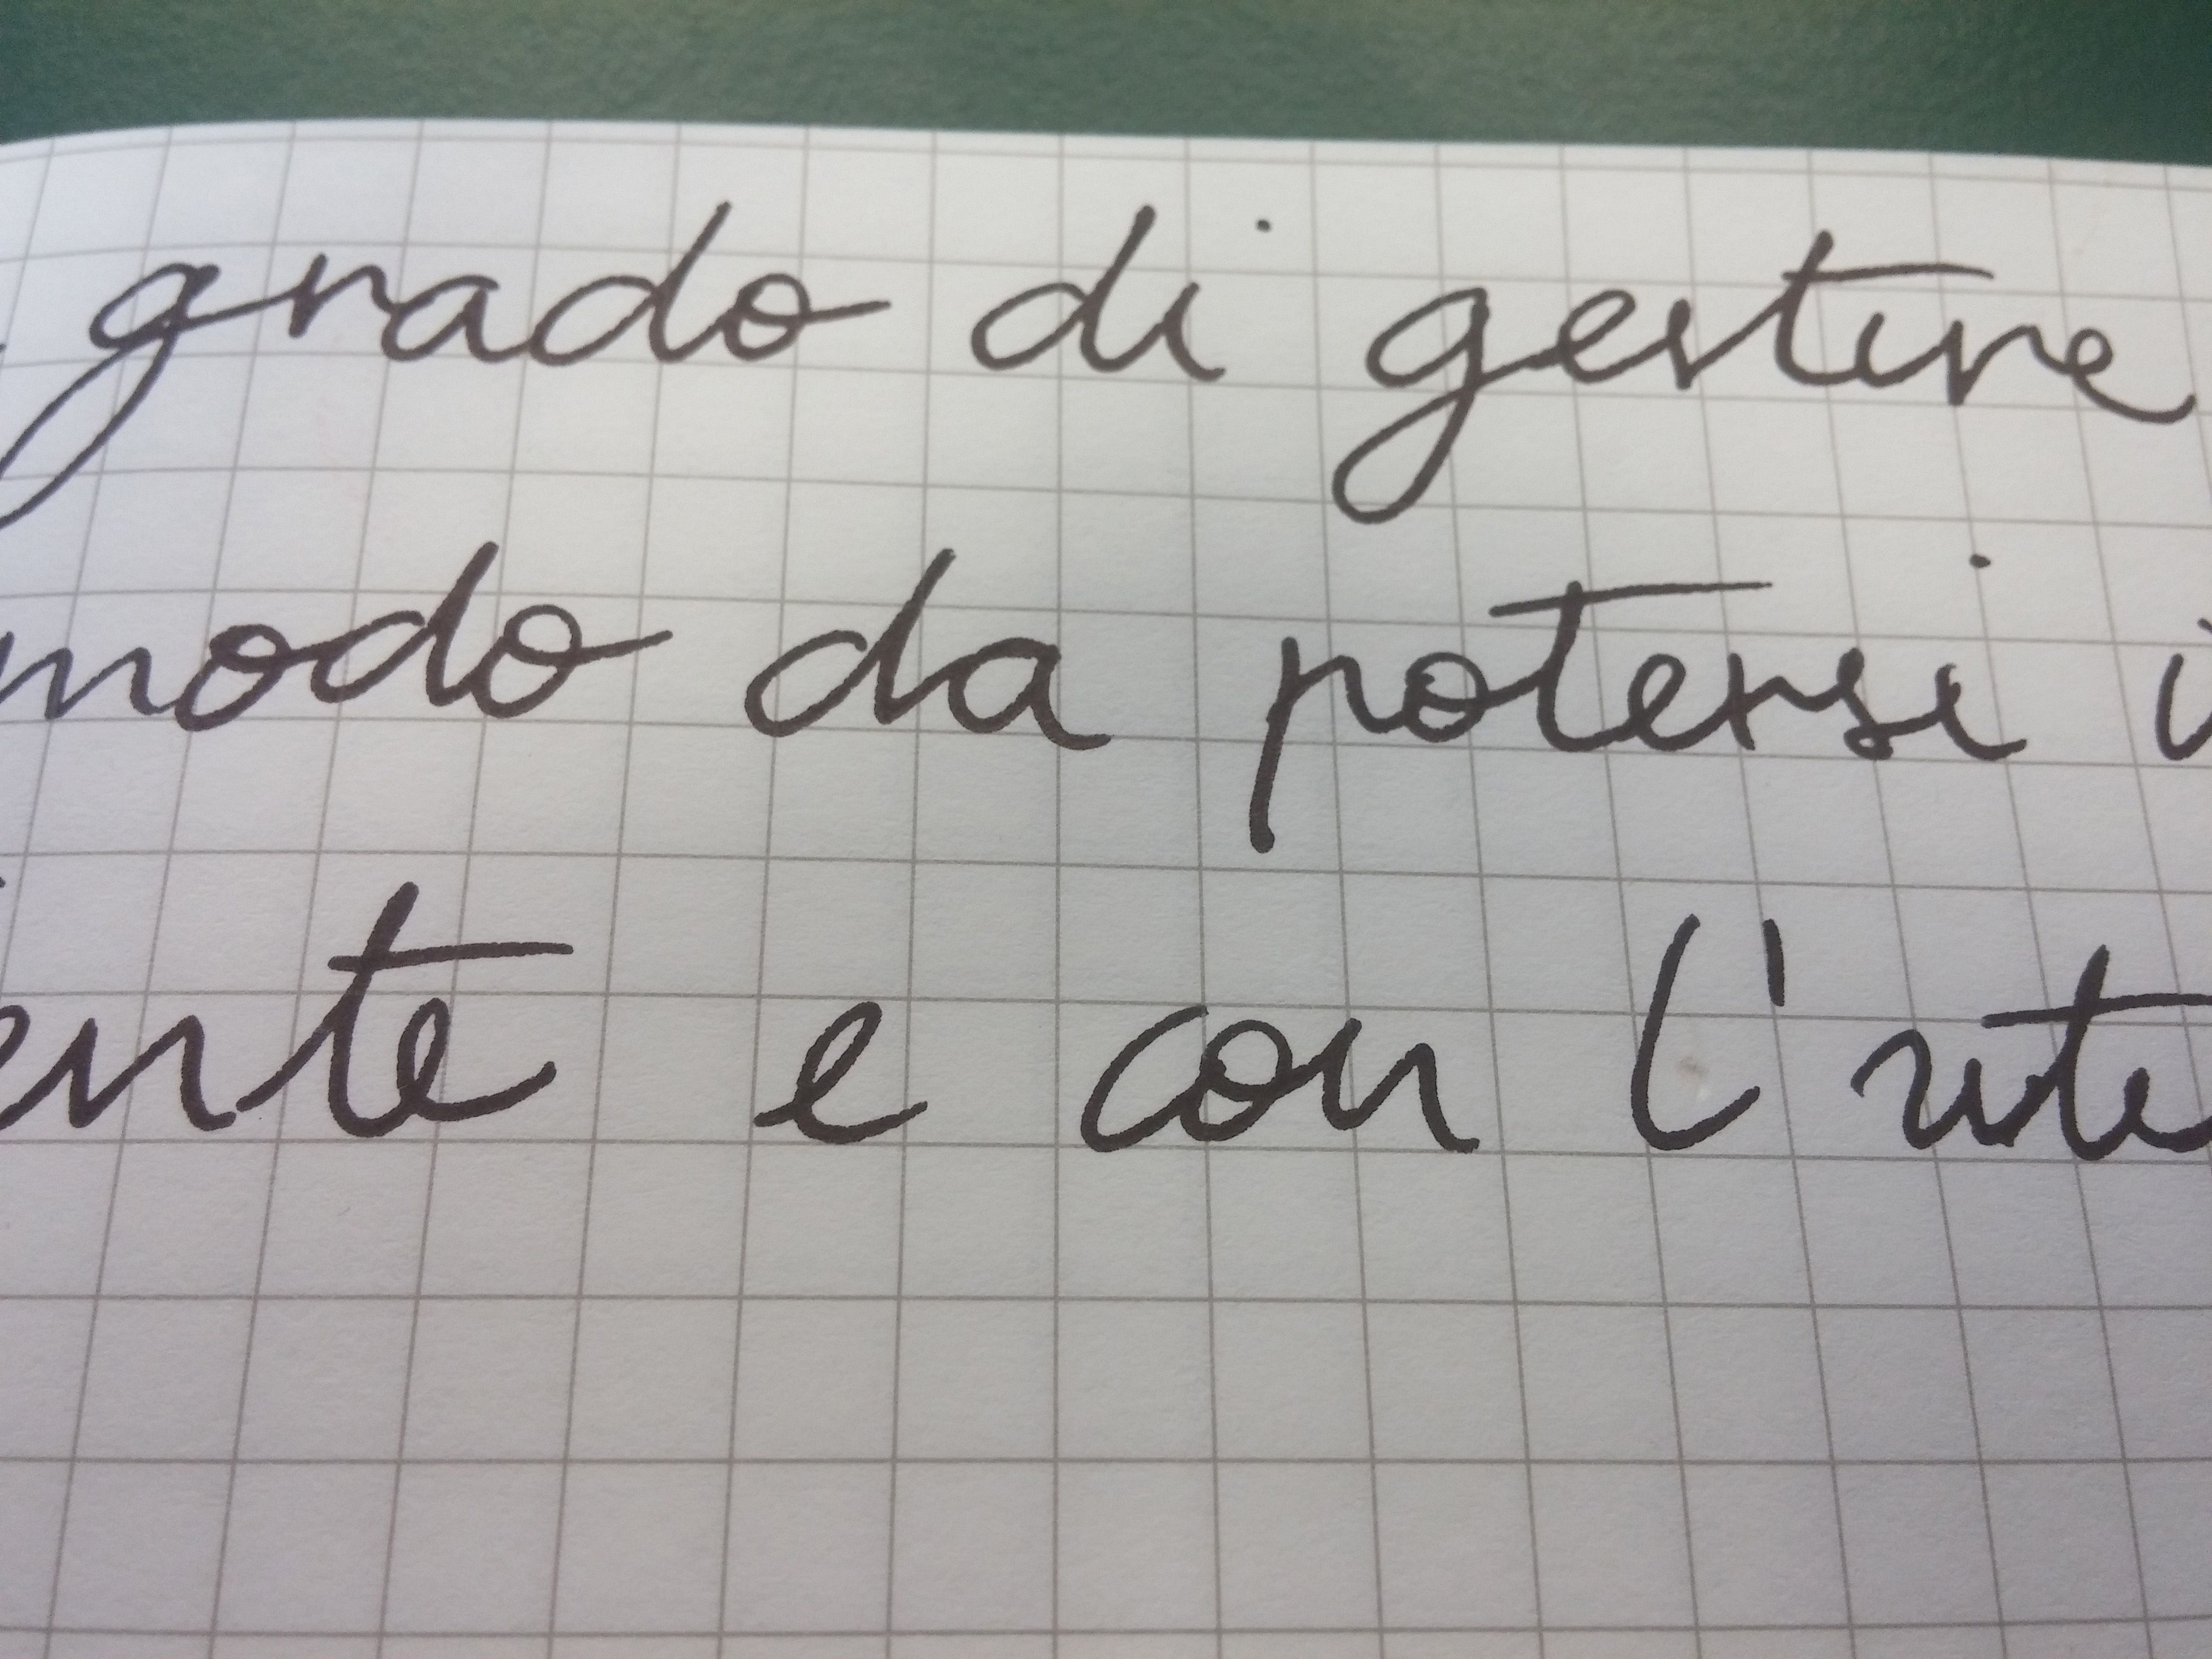 grado di gestire
modo da potersi
ente e con l'ute